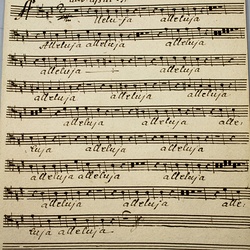 Alleluja alleluja
Alleluja alleluja alleluja
alleluja alleluja alleluja
alleluja alleluja alleluja
alleluja alleluja alle,
luja alleluja alleluja
alleluja alleluja alleluja alle,
luja alleluja